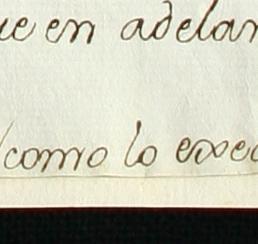 ue en adelan
como lo exec